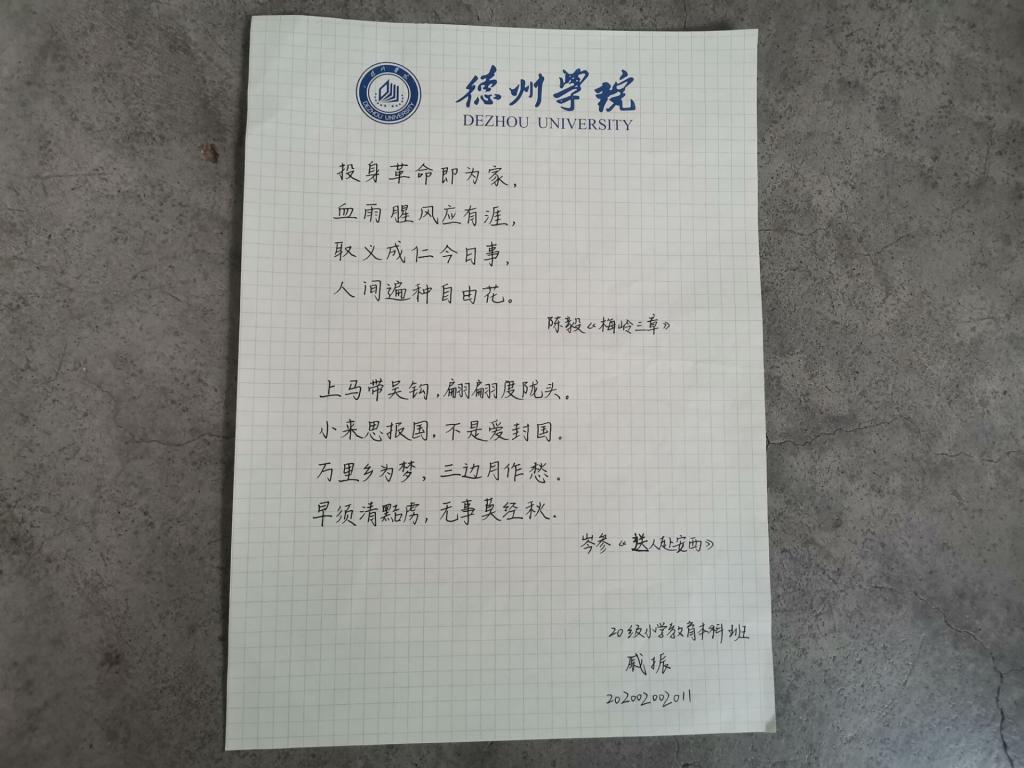 德州学院
DEZHOU UNIVERSITY
德州学院
DEZHOU UNIVERSITY
投身革命即为家，
血雨腥风应有涯，
取义成仁今日事，
人间遍种自由花。
陈毅《梅岭三章》
上马带吴钩，翩翩度陇头。
小来思报国，不是爱封国。
万里乡为梦，三边月作愁。
早须清黠虏，无事莫经秋。
岑参《送人赴安西》
20级小学教育本科班
戚振
202002002011